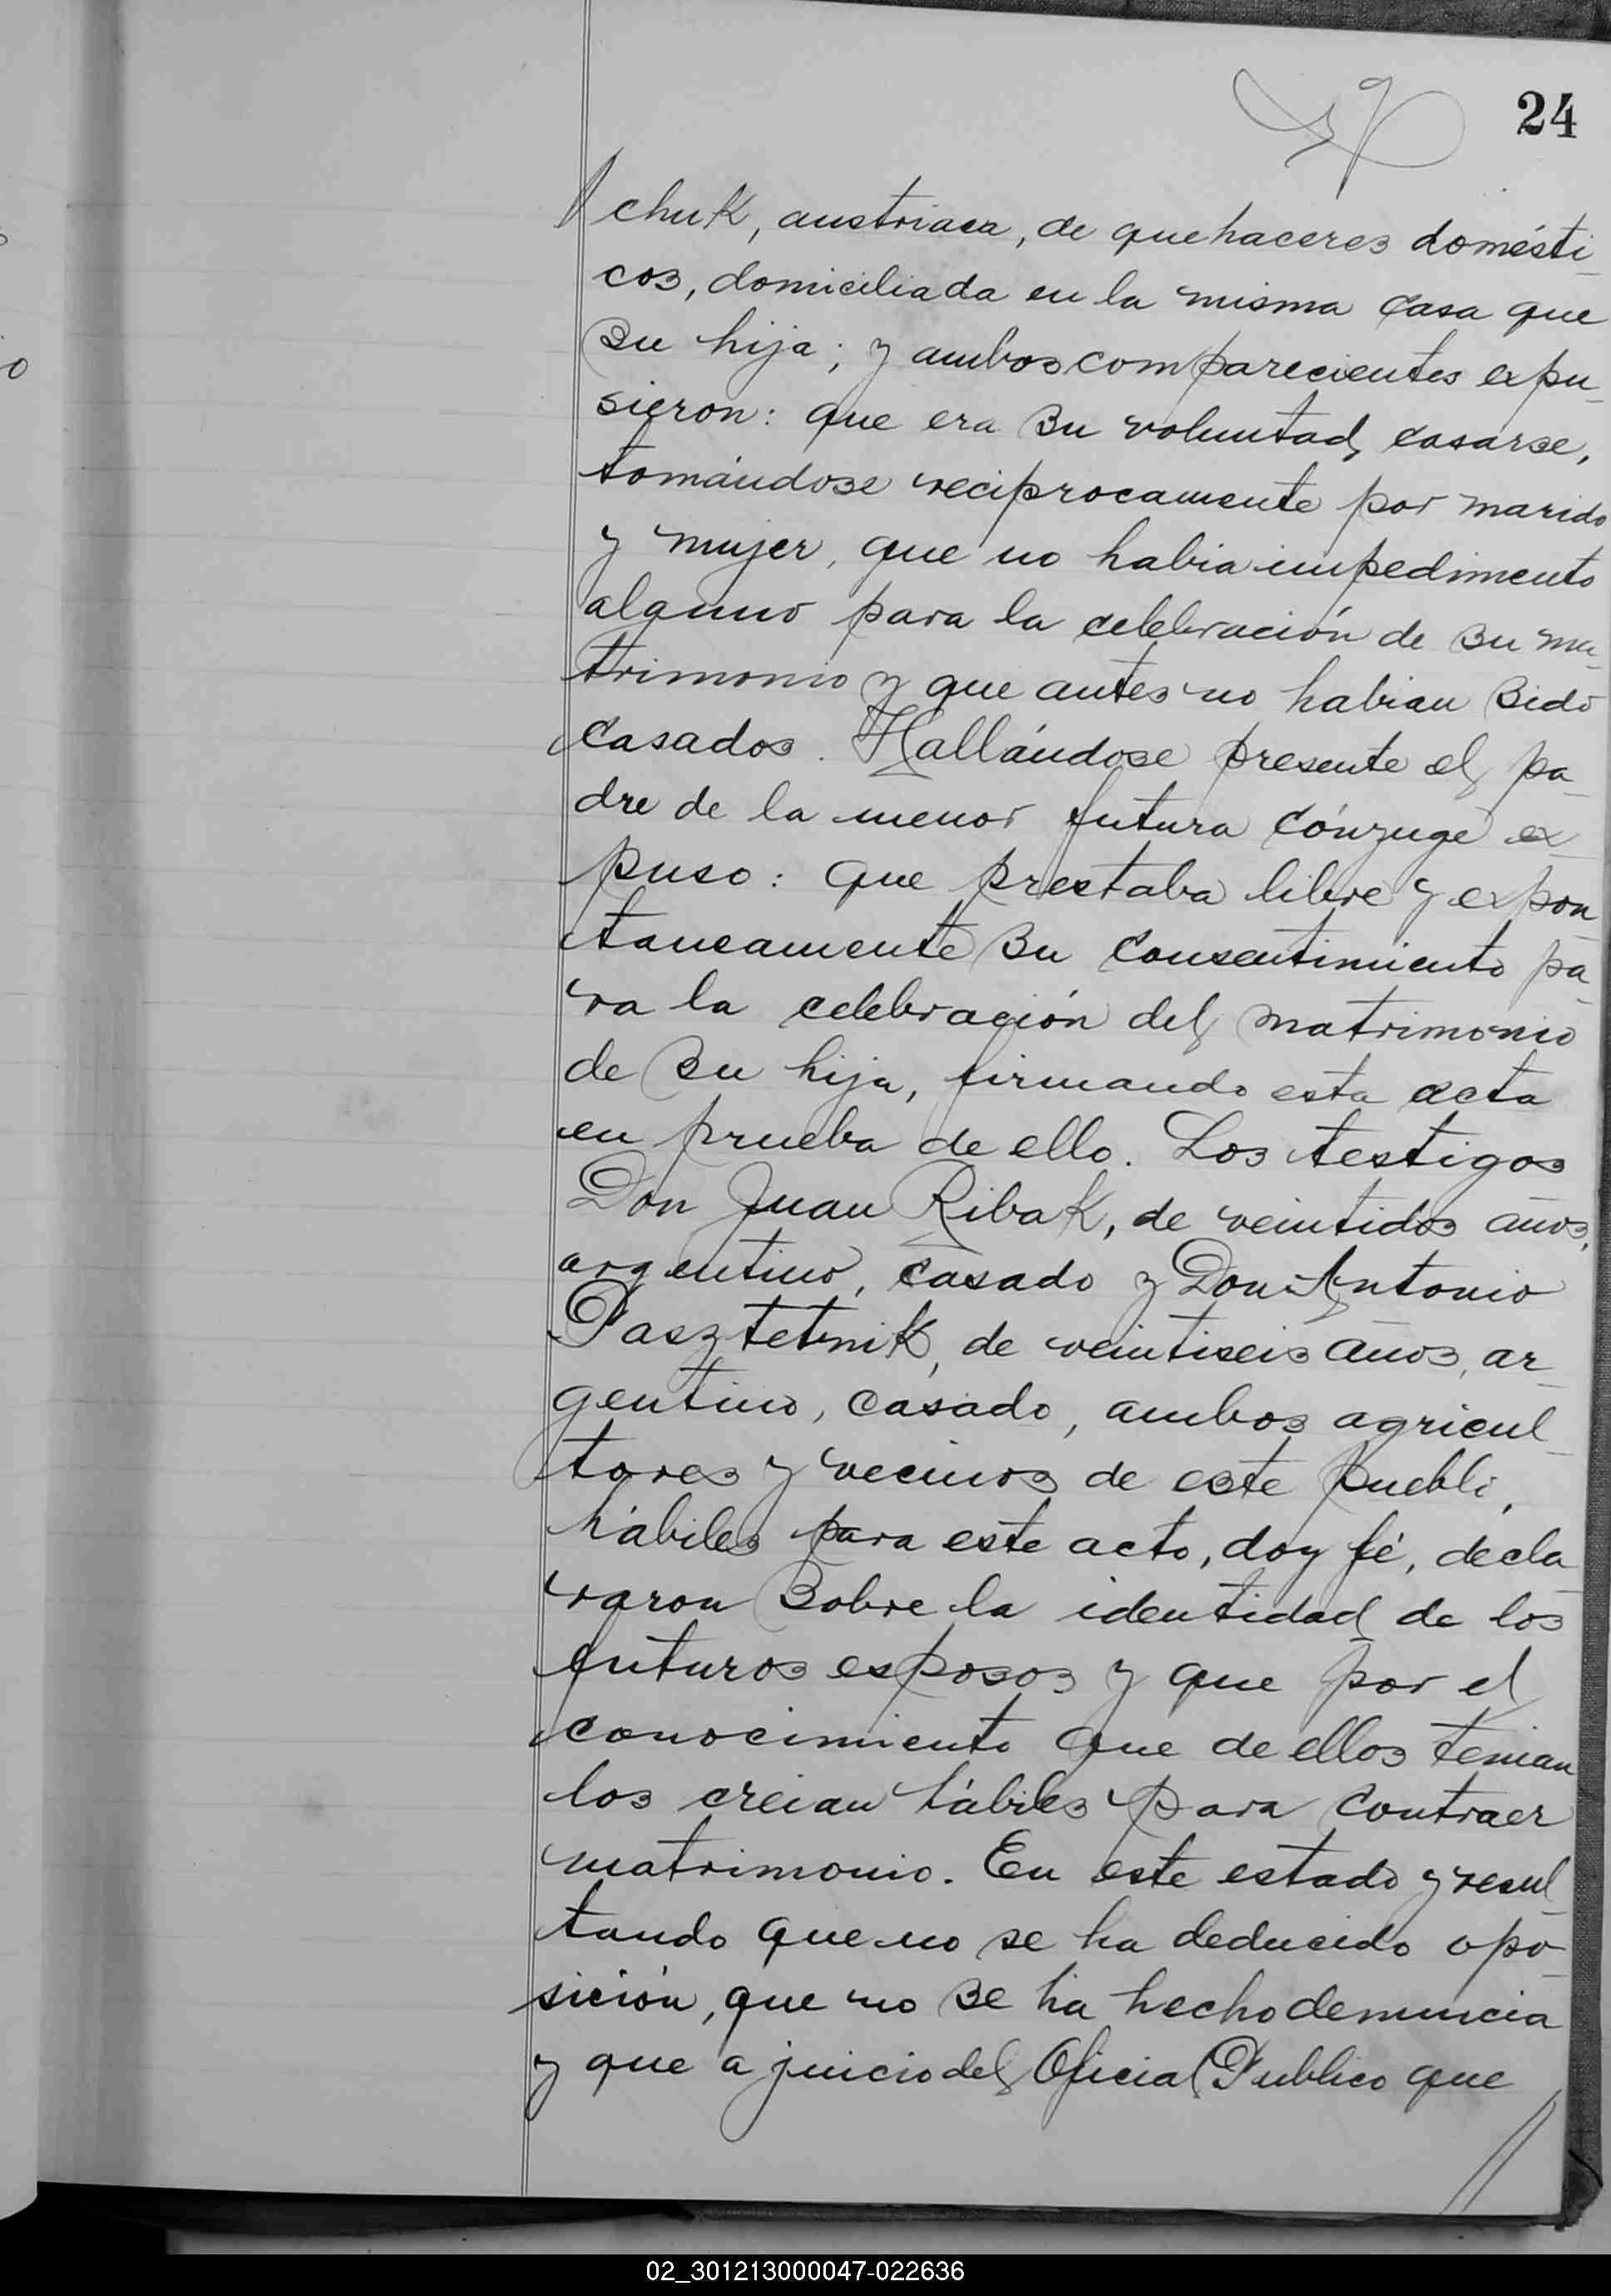 24
chuk, austriaca, de quehaceres domésti_
cos, domiciliada en la misma casa que
su hija; y ambos comparecientes expu_
sieron: que era su voluntad, casarse,
tomándose reciprocamente por marido
y mujer, que no habia impedimento
alguno para la celebración de su ma_
trimonio y que antes no habian sido
casados. Hallándose presente el pa_
dre de la menor futura cónyuge ex_
puso: que prestaba libre y expon_
taneamente su consentimiento pa_
ra la celebración del matrimonio
de su hija, firmando esta acta
en prueba de ello. Los testigos
Don Juan Ribak, de veintidos años,
argentino, casado y Don Antonio
Pasztetnik, de veintiseis años, ar_
gentino, casado, ambos agricul_
tores y vecinos de este pueblo,
hábiles para este acto, doy fé, decla_
raron sobre la identidad de los
futuros esposos y que por el
conocimiento que de ellos tenian
los creian hábiles para contraer
matrimonio. En este estado y resul_
tando que no se ha deducido opo_
sición, que no se ha hecho denuncia
y que a juicio del Oficial Publico que
02_301213000047-022636